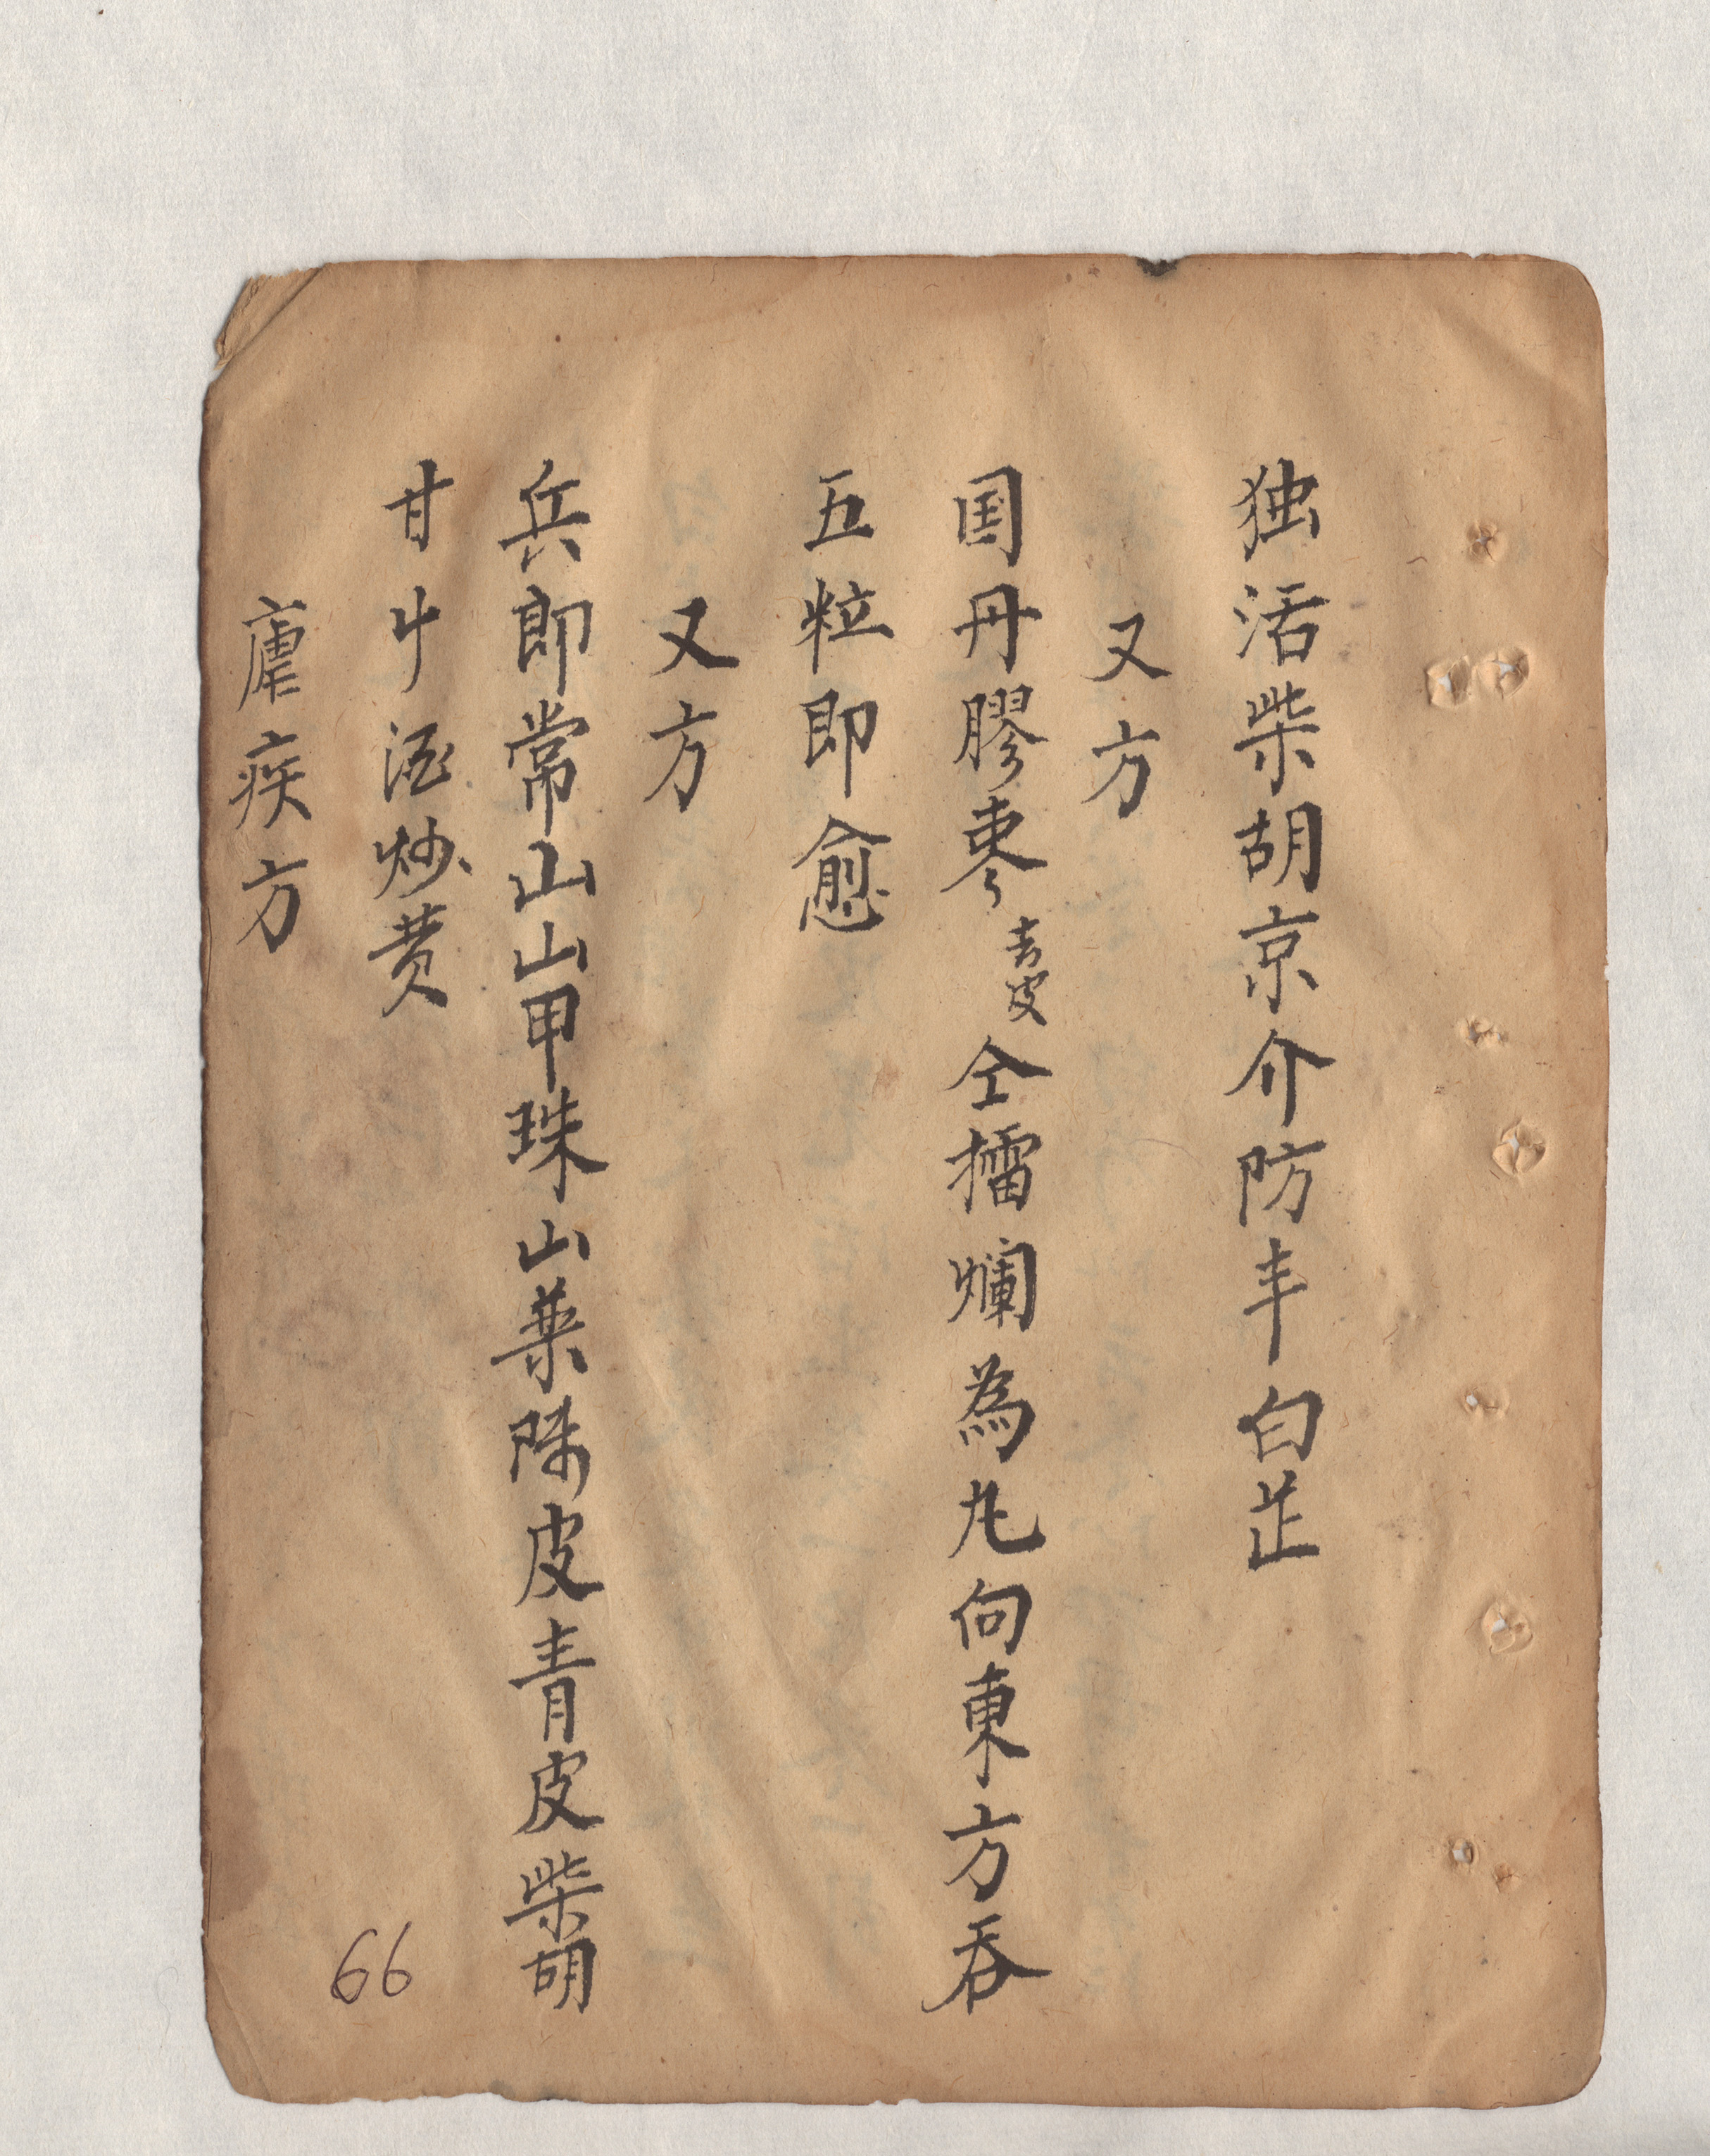 独活柴胡京介防丰白芷
又方
国丹膠枣去皮仝擂爛為丸向東方吞
五粒即愈
又方
兵郎常山山甲珠山藥陈皮青皮柴胡
甘屮酒炒黄
瘧疾方
66